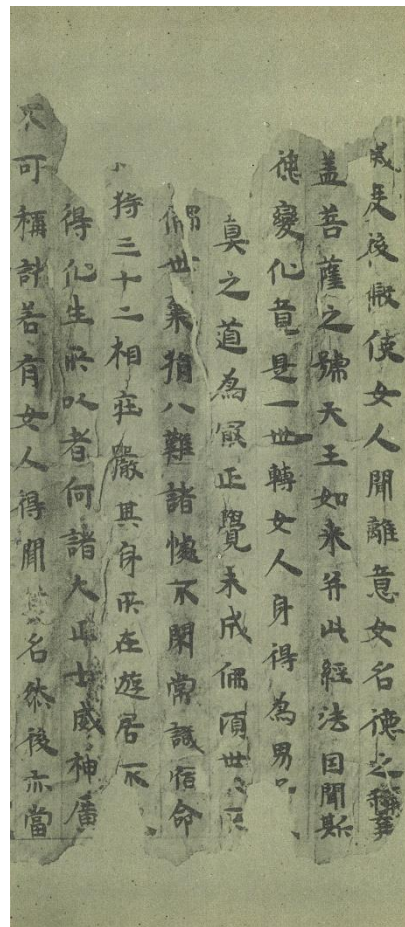 滅度後假使女人聞離意女名德之稱華
盖菩薩之號天王如来并此經法因聞斯
德變化竟是一世轉女人身得為男
真之道為冣正覺未成佛頃世
佛世棄捐八難諸惱不閑常識宿命
持三十二相莊嚴其身所在遊居不
得化生所以者何諸大正士威神廣
不可稱計若有女人得聞其名然後亦當